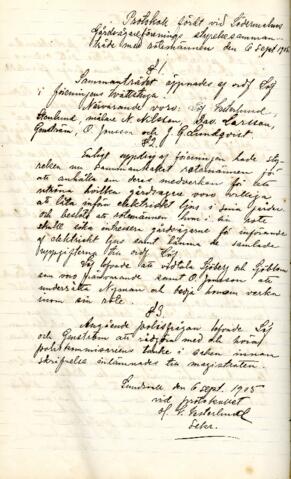 Protokoll fördt vid Södermalms
Gårdsägareförenings styrelsesamman-
träde med rotemännen den 6 sept 1905
§1
Sammanträdet öppnades af ordf Löf
i föreningens tvättstuga
Närvarande voro: Löf Vesterlund,
Stenlund, målare N. Nilsson, Dav. Larsson,
Gunström, O. Jonsson och J G Lundqvist
§2.
Enligt uppdrag af föreningen hade sty-
relsen nu sammankallat rotemännen för
att anhålla om deras medverkan för att
utröna hvilka gårdsägare voro villiga
att låta införa elektriskt ljus i sina gårdar
och beslöts att rotemännen hvar i sin rote
skulle söka intressera gårdsägarne för införande
af elektriskt ljus samt lämna de samlade
uppgifterna till ordf Löf
Löf lofvade att vidtala Sjöberg och Sjöblom
som voro frånvarande samt O Jonsson att
underrätta Nyman och bedja honom verka
inom sin rote
§3.
Angående polisfrågan lofvade Löf
och Gunström att rådgöra med och höra
poliskommissariens tanke i saken innan
skrifvelse inlämnades till magistraten.
Sundsvall den 6 sept. 1905
vid protokollet
C. Vesterlund
Sekr.